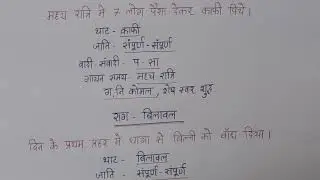 मध्य रात्रि मे 7 लोग पैसा देकर काफी पिये।
थाट - काफी
जाति - संपूर्ण-संपूर्ण
वादी संवादी - प - सा
गायन समय - मध्य रात्रि
ग, नि कोमल, शेष स्वर शुद्ध
राग - बिलावल
दिन के प्रथम प्रहर में धागा से बिल्ली को बाँध दिया।
थाट - बिलावल
जाति - संपूर्ण-संपूर्ण